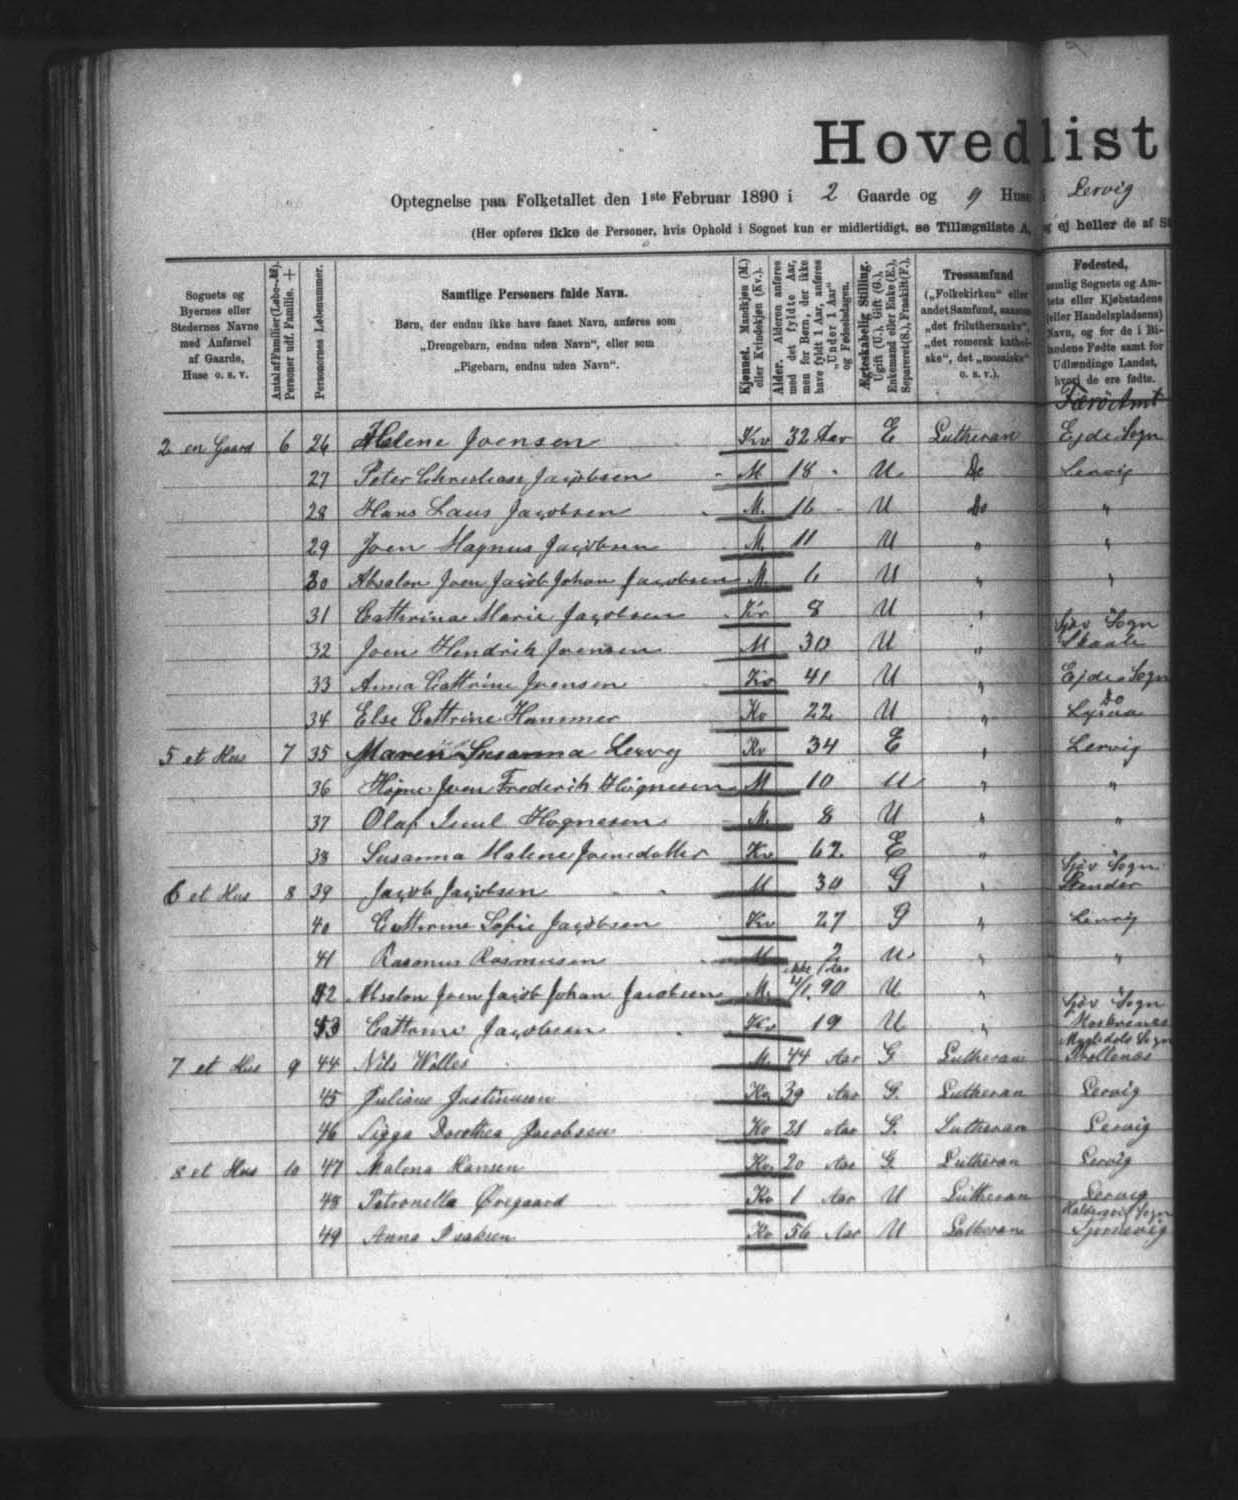 Hovedlist
Optegnelse paa Folketallet den 1ste Februar 1890 i 2 Gaarde og 9 Huse i Lervig
(Her opføres ikke de Personer, hvis Ophold i Sognet kun er midlertidigt, se Tillægsliste A, og ej heller de af
Sognets og Byernes eller Stedernes Navne med Anførsel af Gaarde, Huse o. s. v.
Antal af Familier (Løbe-№). Personer udf. Familie. +
Personernes Løbenummer.
Samtlige Personers fulde Navn.
Børn, der endnu ikke have faaet Navn, anføres som „Drengebarn, endnu uden Navn“, eller som „Pigebarn, endnu uden Navn“.
Kjønnet. Mandkjøn (M.) eller Kvindekjøn (Kv.).
Alder. Alderen anføres med det fyldte Aar, men for Børn, der ikke have fyldt 1 Aar, anføres „Under 1 Aar“ og Fødselsdagen.
Ægteskabelig Stilling. Ugift (U.), Gift (G.), Enkemand eller Enke (E.), Separeret (S.), Fraskilt (F.).
Trossamfund („Folkekirken“ eller andet Samfund, saasom „det frilutheranske“, „det romersk katholske“, det „mosaiske“ o. s. v.).
Fødested, nemlig Sognets og Amtets eller Kjøbstadens (eller Handelspladsens) Navn, og for de i Bilandene Fødte samt for Udlændinge Landet, hvori de ere fødte.
Færø Amt
2 en Gaard 6 26 Helene Joensen Kv 32 Aar E Lutheran Ejde Sogn
27 Peter Christian Jacobsen M 18 " U Do Lervig
28 Hans Laus Jacobsen M. 16 " U Do "
29 Joen Magnus Jacobsen M. 11 U " "
30 Absalon Joen Jacob Johan Jacobsen M. 6 U " "
31 Cathrina Marie Jacobsen Kv 8 U "
32 Joen Hendrik Joensen M 30 U " Sjov Sogn Skaale
33 Anna Cathrine Joensen Kv 41 U " Ejde Sogn
34 Else Cathrine Hammer Kv 22 U " Do
5 et Hus 7 35 Maren Susanna Lervg Kv 34 E " Lervig
36 Høgne Joen Frederik Høgnesen M 10 U " "
37 Olaf Juul Høgnesen M. 8 U " "
38 Susanna Malene Joensdatter Kv 62 E "
6 et Hus 8 39 Jacob Jacobsen M 30 G " Sjov Sogn
40 Cathrine Sofie Jacobsen Kv 27 G " Lervig
41 Rasmus Rasmussen M 2 U. " "
42 Absalon Joen Jacob Johan Jacobsen M. 4/1. 90 U "
43 Cathrine Jacobsen Kv 19 U " Sjov Sogn
7 et Hus 9 44 Nils Wolles M. 44 Aar G Lutheran
45 Juliane Justinusen Kv 39 Aar G. Lutheran Lervig
46 Sigga Dorothea Jacobsen Kv 21 Aar G. Lutheran Lervig
8 et Hus 10 47 Malena Hansen Kv 20 Aar G. Lutheran Lervig
48 Petronella Øregaard Kv 1 Aar U Lutheran Lervig
49 Anna Isaksen Kv 56 Aar U Lutheran Haldersvig Sogn Tjørnevig